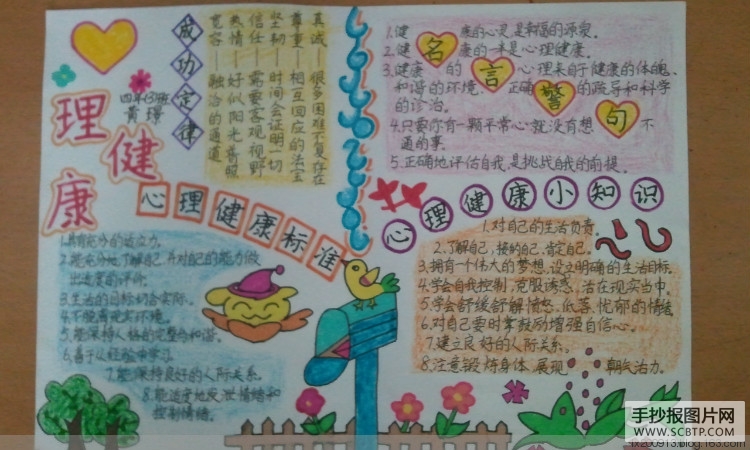 理
健
康
四年(3)班
黄璟
成功定律
真诚—很多困难不复存在
尊重—相互回应的法宝
坚韧—时间会证明一切
信任—需要客观视野
热情—好似阳光普照
宽容—融洽的通道
心理健康标准
1.具有充分的适应力。
2.能充分地了解自己,并对自己的能力做
出适度的评价。
3.生活的目标切合实际。
4.不脱离现实环境。
5.能保持人格的完整与和谐。
6.善于从经验中学习。
7.能保持良好的人际关系。
8.能适度地发泄情绪和
控制情绪。
名言警句
1.健康的心灵是幸福的源泉。
2.健康的一半是心理健康。
3.健康的心理来自于健康的体魄、
和谐的环境、正确的疏导和科学
的诊治。
4.只要你有一颗平常心就没有想不
通的事
5.正确地评估自我是挑战自我的前提。
心理健康小知识
1.对自己的生活负责。
2.了解自己,接纳自己,肯定自己。
3.拥有一个伟大的梦想,设立明确的生活目标。
4.学会自我控制,克服诱惑,活在现实当中。
5.学会舒缓解愤怒、低落、忧郁的情绪
6.对自己要时常鼓励增强自信心。
7.建立良好的人际关系。
8.注意锻炼身体,展现朝气活力。
手抄报图片网
WWW.SCBTP.COM
200913.blog.163.com